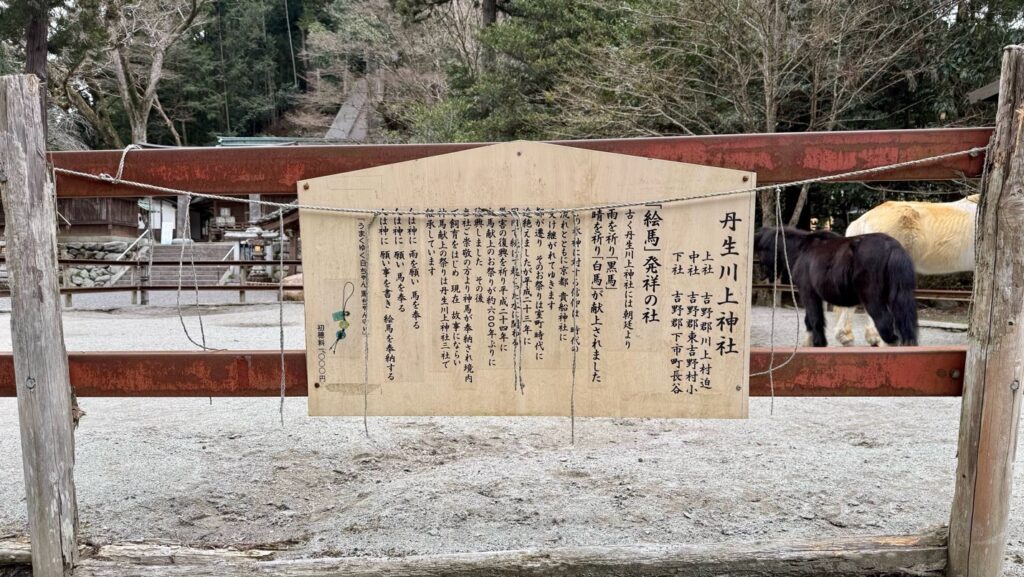 丹生川上神社
上社 吉野郡川上村迫
中社 吉野郡東吉野村小
下社 吉野郡下市町長谷
「絵馬」発祥の社
古く丹生川上神社には朝廷より
雨を祈り「黒馬」が
晴を祈り「白馬」が献上されました
時代の
流れとともに京都 貴船神社に
受け継がれてゆきます
都が遷り そのお祭りは室町時代に
途絶えましたが平成二十三年に
災害の復興を祈り平成二十四年に
馬献上のお祭りが約六〇〇年ぶりに
復興しました その後
当社ご崇敬の方より神馬が奉納され境内
飼育をはじめ 現在 故事にならい
馬献上の祭りは丹生川上神社三社で
継承しています
人は神に 雨を願い 馬を奉る
人は神に 願い 馬を奉る
人は神に 願い事を書き 絵馬を奉納する
初穂料 一〇〇〇円